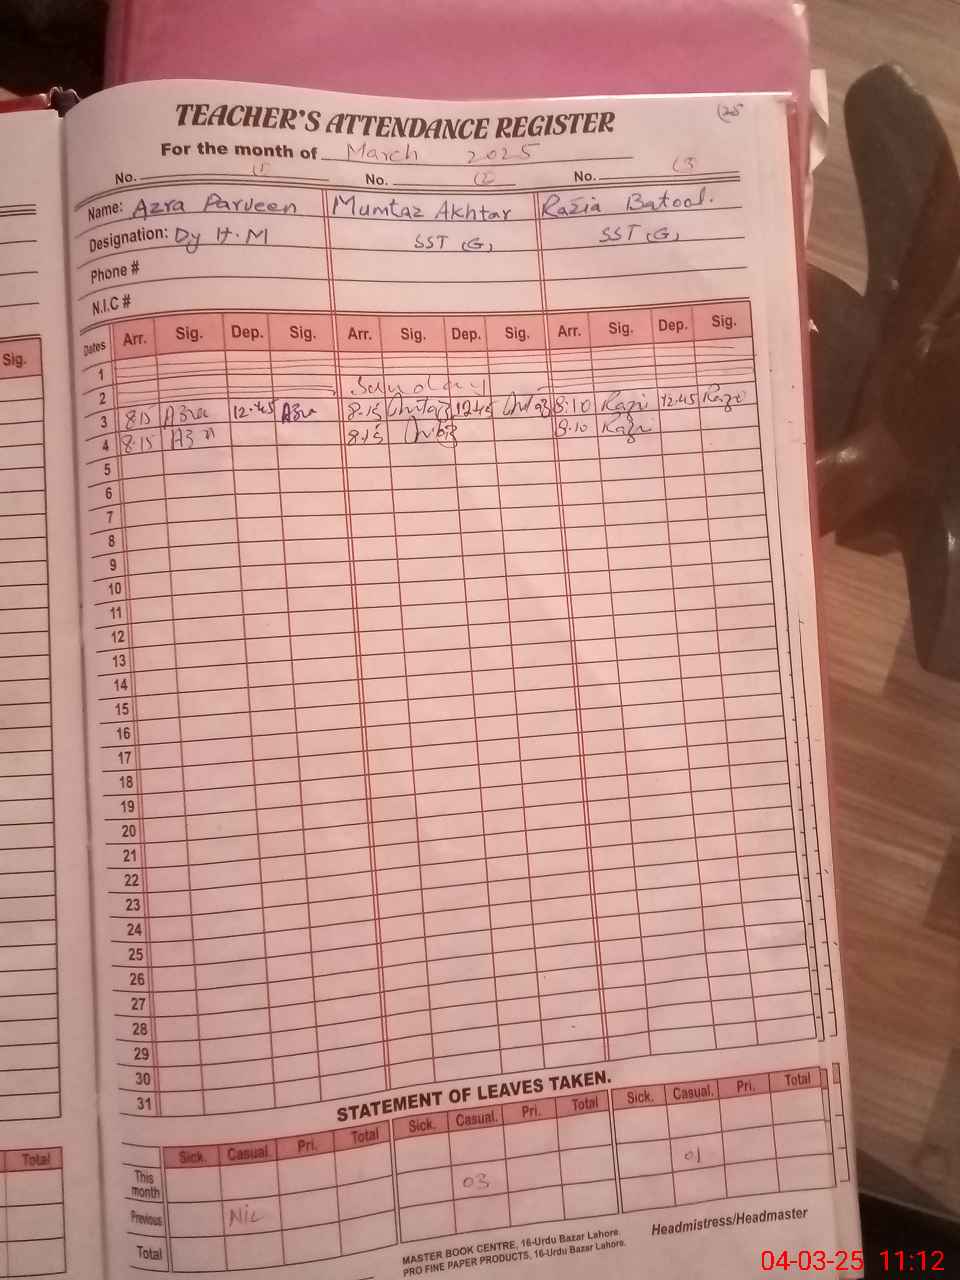 TEACHER'S ATTENDANCE REGISTER
For the month of March 2025
No. (1) No. (2) No. (3)
Name: Azra Parveen Mumtaz Akhtar Razia Batool.
Designation: Dy H.M SST (G) SST (G)
Phone #
N.I.C #
Sig.
Dates Arr. Sig. Dep. Sig. Arr. Sig. Dep. Sig. Arr. Sig. Dep. Sig.
1
2 Sunday
3 8:15 Azra 12:45 Azra 8:15 12:45 8:10 Razi 12:45 Razi
4 8:15 8:15 8:10 Razi
5
6
7
8
9
10
11
12
13
14
15
16
17
18
19
20
21
22
23
24
25
26
27
28
29
30
31
STATEMENT OF LEAVES TAKEN.
Total Sick. Casual. Pri. Total Sick. Casual. Pri. Total Sick. Casual. Pri. Total
This month
Previous Nil 03 01
Total
MASTER BOOK CENTRE, 16-Urdu Bazar Lahore.
PRO FINE PAPER PRODUCTS, 16-Urdu Bazar Lahore.
Headmistress/Headmaster
04-03-25 11:12